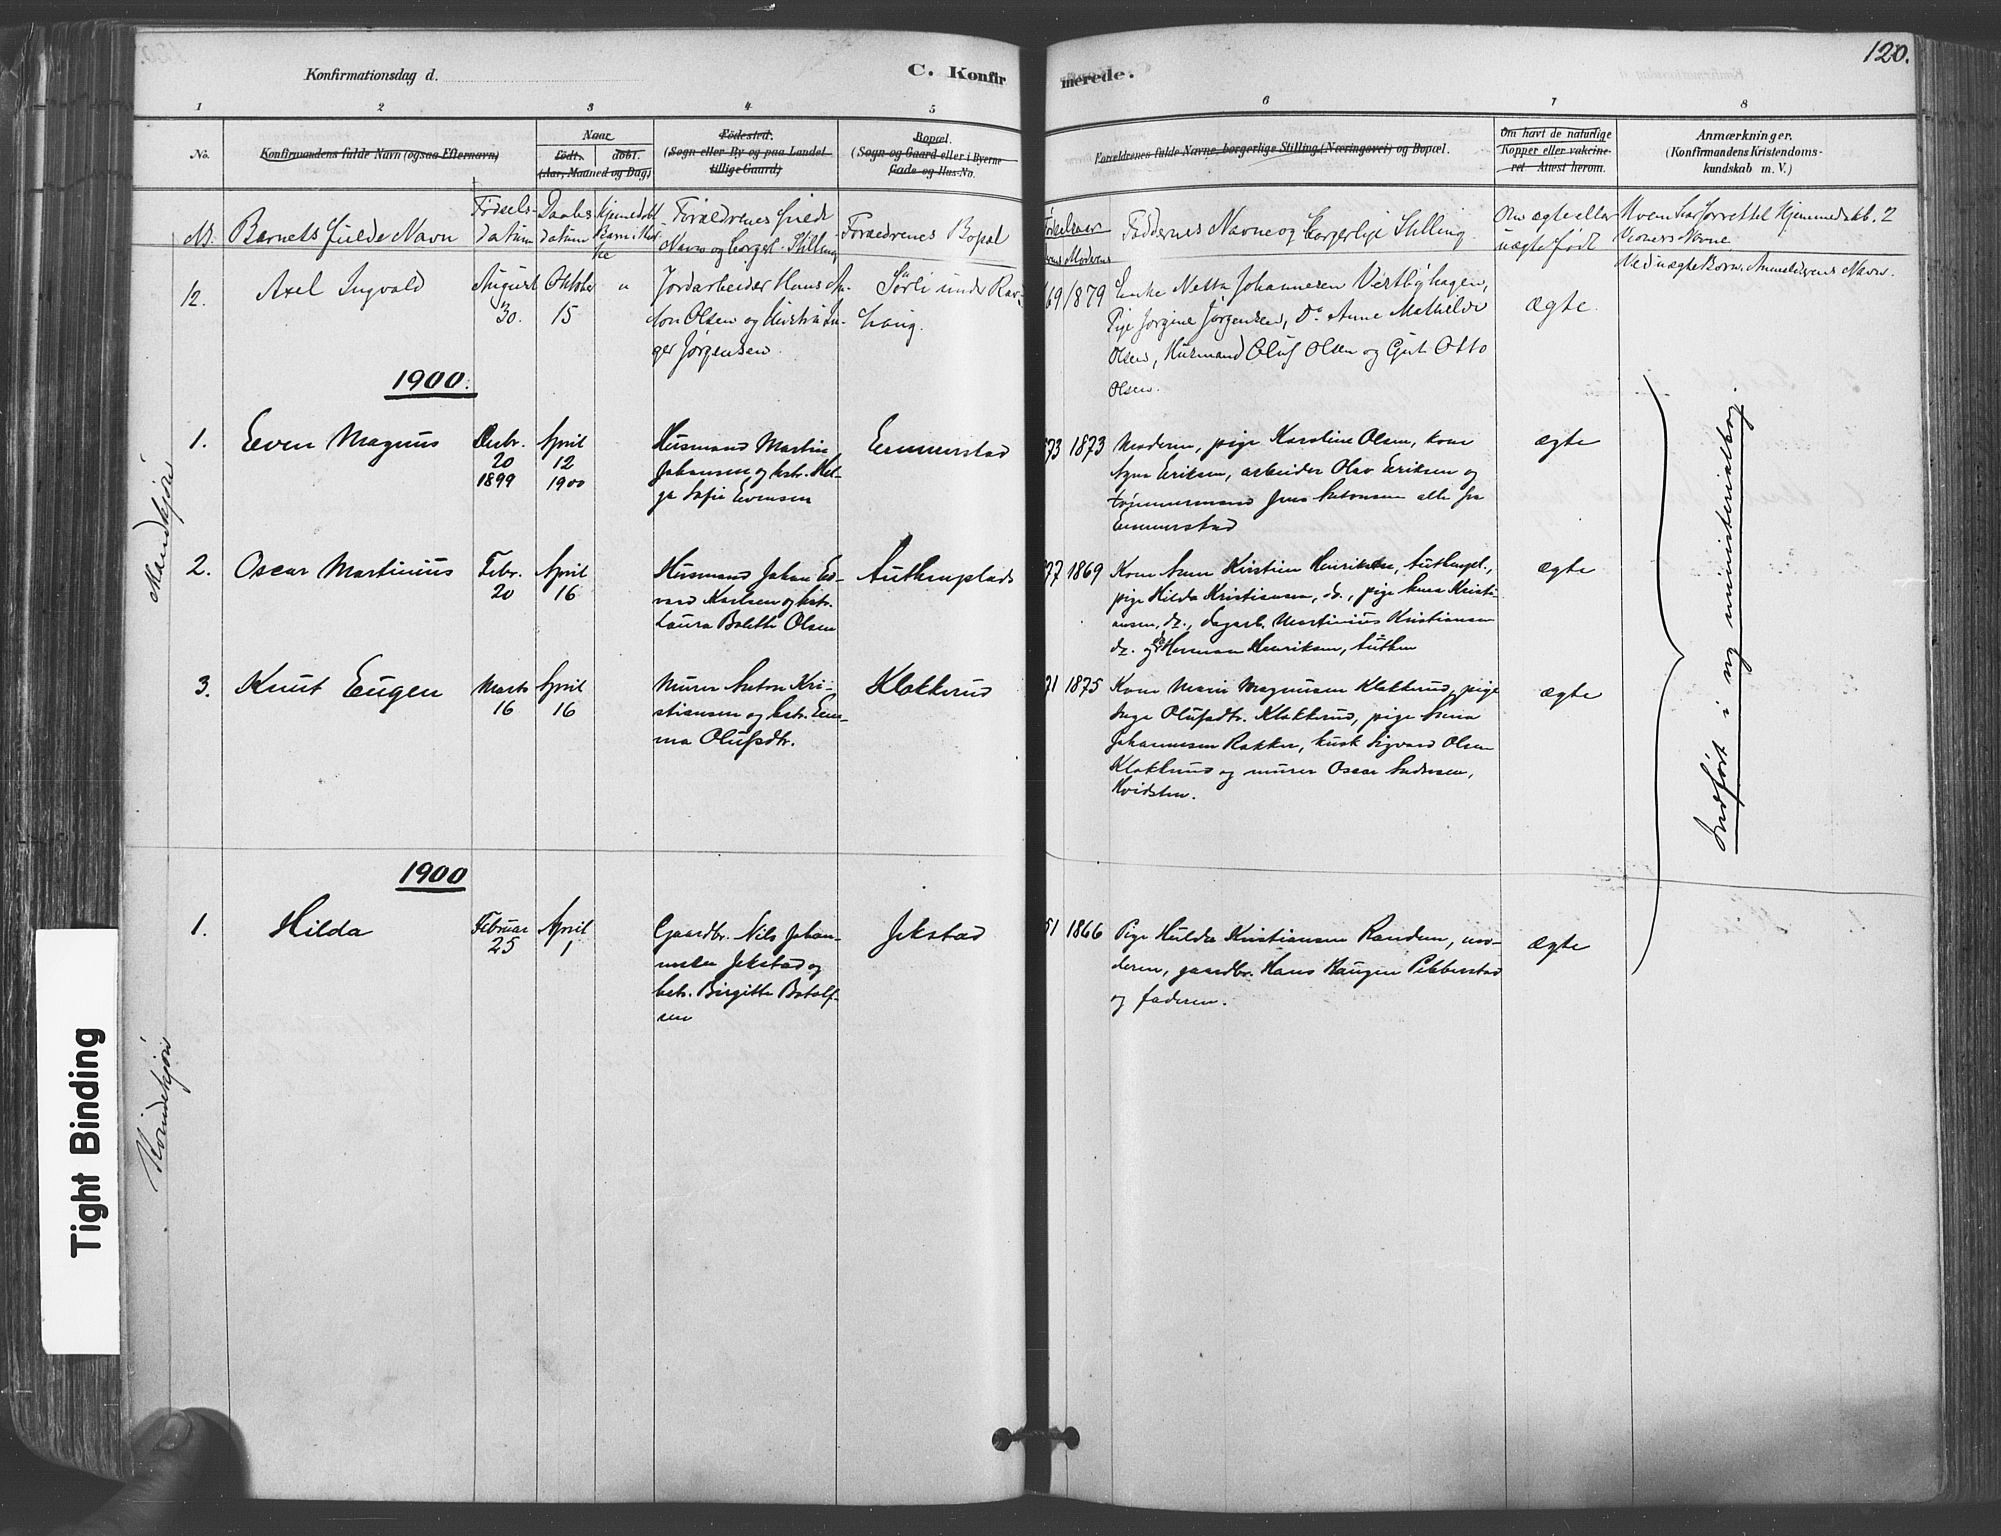 120.
Konfirmationsdag d.
C. Konfirmerede.
1 2 3 4 5 6 7 8
No.
Konfirmandens fulde Navn (ogsaa Efternavn)
Naar
født. døbt.
(Aar, Maaned og Dag)
Fødested.
(Sogn eller By og paa Landet
tillige Gaard)
Bopæl.
(Sogn og Gaard eller i Byerne
Gade og Hus-No.
Forældrenes fulde Navne, borgerlige Stilling (Næringsvei) og Bopæl.
Om havt de naturlige
Kopper eller vakcine-
ret. Attest herom.
Anmærkninger.
(Konfirmandens Kristendoms-
kundskab m. V.)
Barnets fulde Navn
Fødsels-
datum
Daabs
datum
Hjemmedøbt
Forældrenes fulde
Navn og borgerl. Stilling
Forældrenes Bopæl
Faddernes Navne og borgerlige Stilling
Om ægte eller
uægte født
Hvem har forrettet Hjemmedåb. 2
Konens Navne
Ved uægte Børn. Anmelderens Navn.
12.
Axel Ingvald
August
30.
Oktober
15
Jordarbeider Hans An-
ton Olsen og Hustru In-
ger Jørgensen
Sørli under Rav-
haug.
69/1879
Enke Netta Johannesen Vestbyhagen,
Pige Jørgine Jørgensen, Do Anne Mathilde
Olsen, Husmand Oluf Olsen og Gut Otto
Olsen.
ægte.
1900.
Mandkjøn
1.
Even Magnus
Decbr.
20
1899
April
12
1900
Husmand Martin
Johansen og hstr. Hel-
ga Sofie Evensen
Emmerstad
73 1873
Moderen, pige Karstine Olsen, kone
Agna Eriksen, arbeider Olav Eriksen og
tømmermand Jens Antonsen alle fra
Emmerstad
ægte
2.
Oscar Martinius
Febr.
20
April
16
Husmand Johan Ed-
vard Karlsen og hstr.
Laura Bolette Olsen
Authenplads
77 1869
Kone Anne Kirstine Henriksen, Authenpl.,
pige Hilda Kristiansen, do., pige Anna Kristi-
ansen, do., dagarb. Martinius Kristiansen
do. og Herman Henriksen, Authen
ægte
3.
Knut Eugen
Marts
16
April
16
Murer Anton Kri-
stiansen og hstr. Em-
ma Olufsdtr.
Klokkerud
71 1875
Kone Marie Magnusen Klokkerud, pige
Inga Olufsdtr. Klokkerud, pige Anna
Johannesen Rakker, kusk Sigvard Olsen
Klokkerud og murer Oscar Andersen,
Hvidsten.
ægte
Indført i ny ministerialbog.
1900
Kvindekjøn
1.
Hilda
Februar
25
April
1
Gaardbr. Nils Johan-
nesen Jekstad og
hstr. Birgitte Botolf-
sen
Jekstad
51 1866
Pige Hulda Kristiansen Randem, mo-
deren, gaardbr. Hans Haugen Pibberstad
og faderen.
ægte
Tight Binding